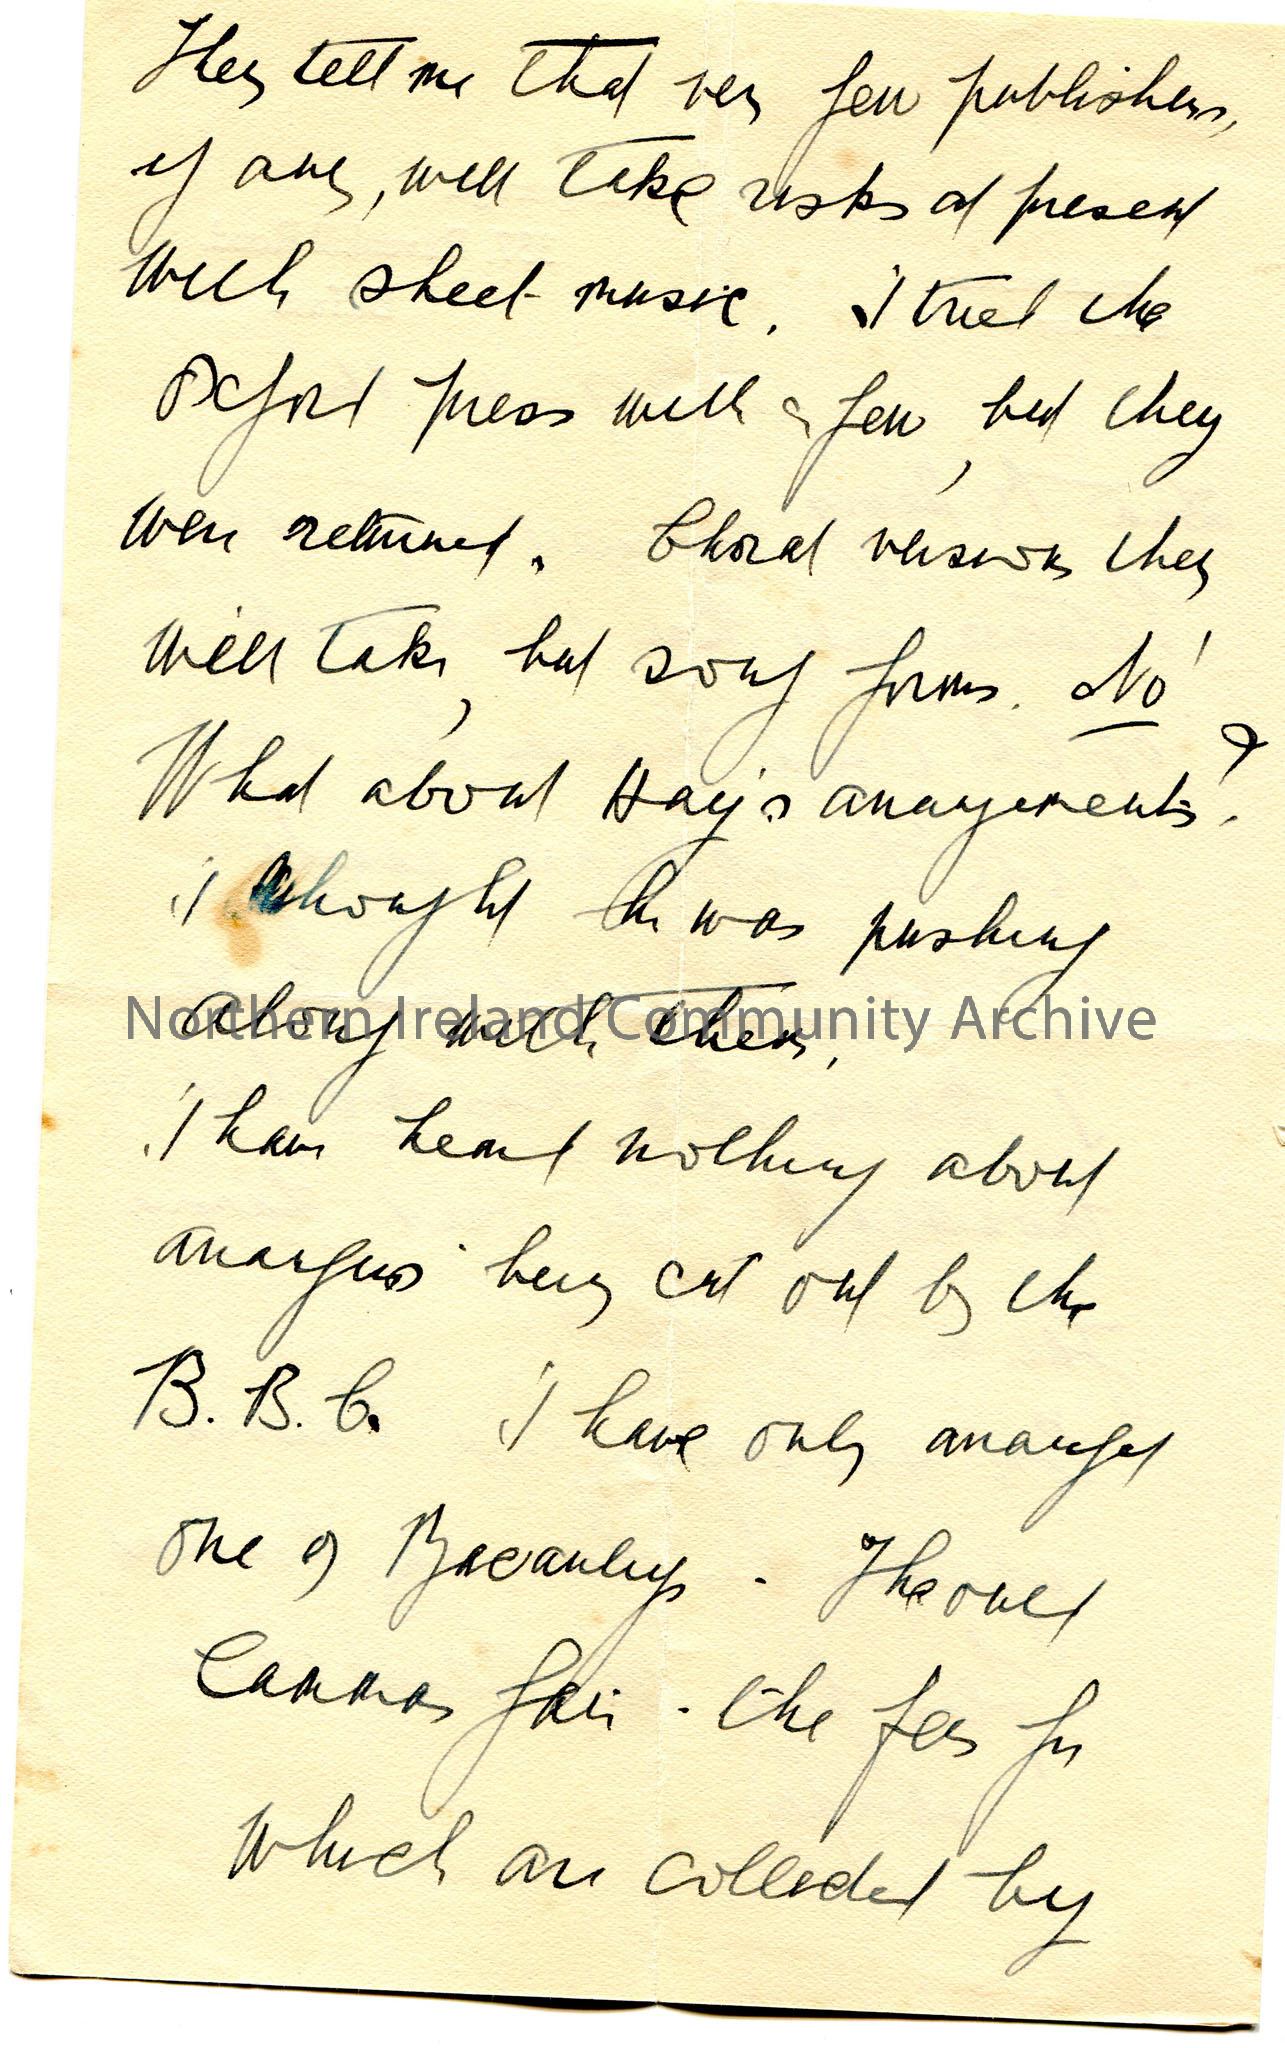 They tell me that very few publishers,
if any, will take risks at present
with sheet music. I tried the
Oxford press with a few, but they
were returned. Choral versions they
will take, but song forms. No!
What about Hay's arrangements?
I thought he was pushing
along with them.
Northern Ireland Community Archive
I have heard nothing about
arrangers being cut out by the
B.B.C. I have only arranged
one of Macaulays. The ould
Lammas fair - the fees for
which are collected by